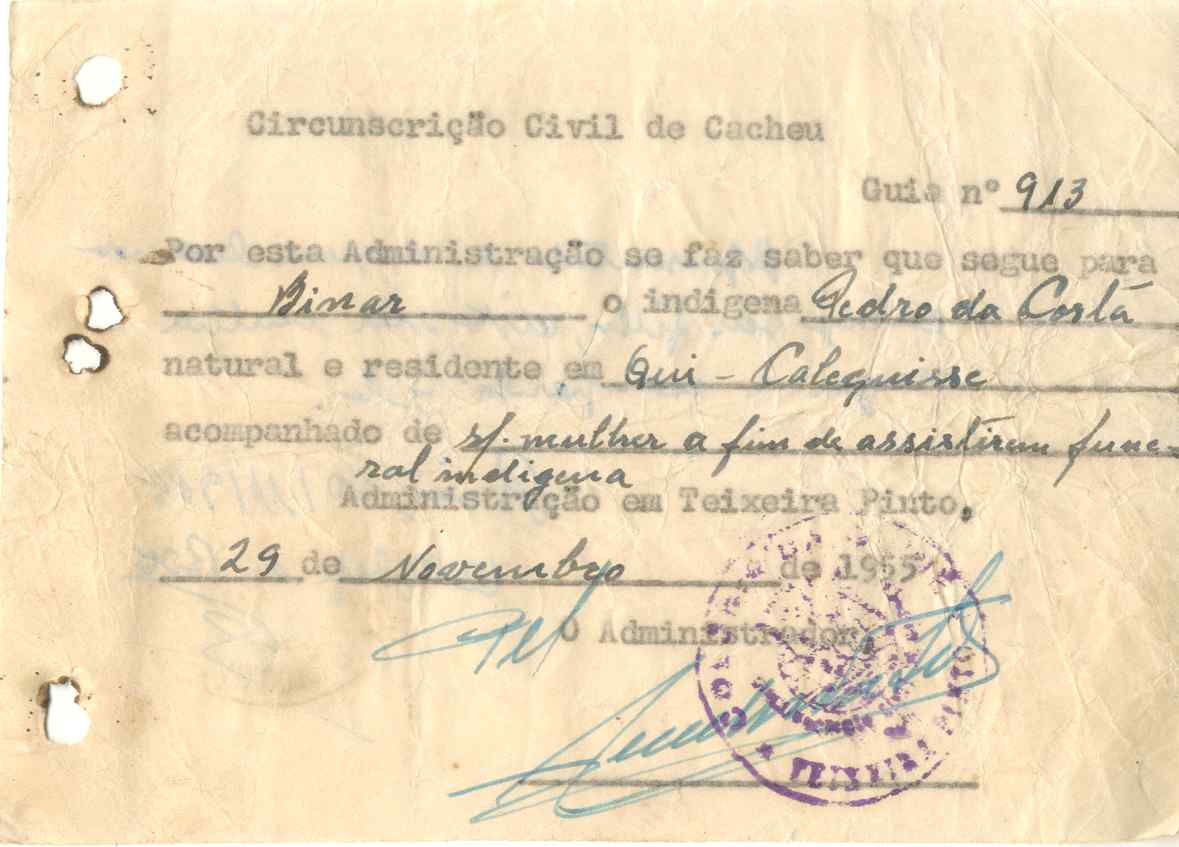 Circunscrição Civil de Cacheu
Guia nº 913
Por esta Administração se faz saber que segue para
Binar o indigena Pedro da Costa
natural e residente em Qui - Calequisse
acompanhado de s/. mulher a fim de assistirem fune-
ral indigena
Administração em Teixeira Pinto,
29 de Novembro de 1955
O Administrador,
TEIXEIRA PINTO